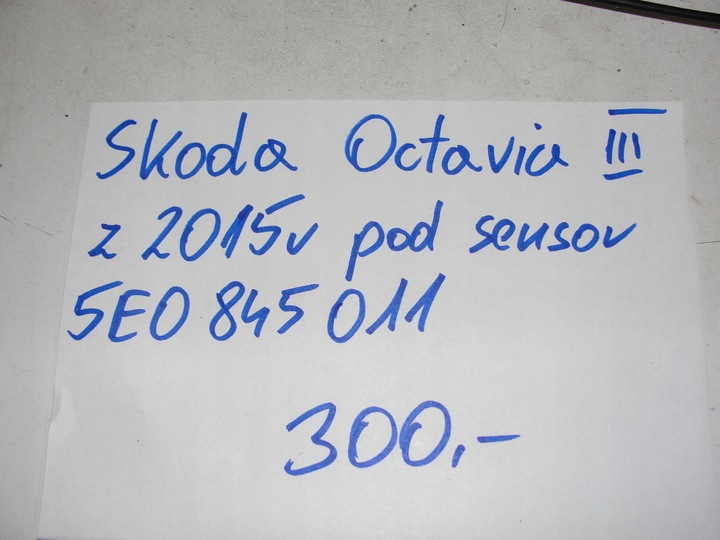 Skoda Octavia III
z 2015r pod sensor
5E0 845 011
300,-